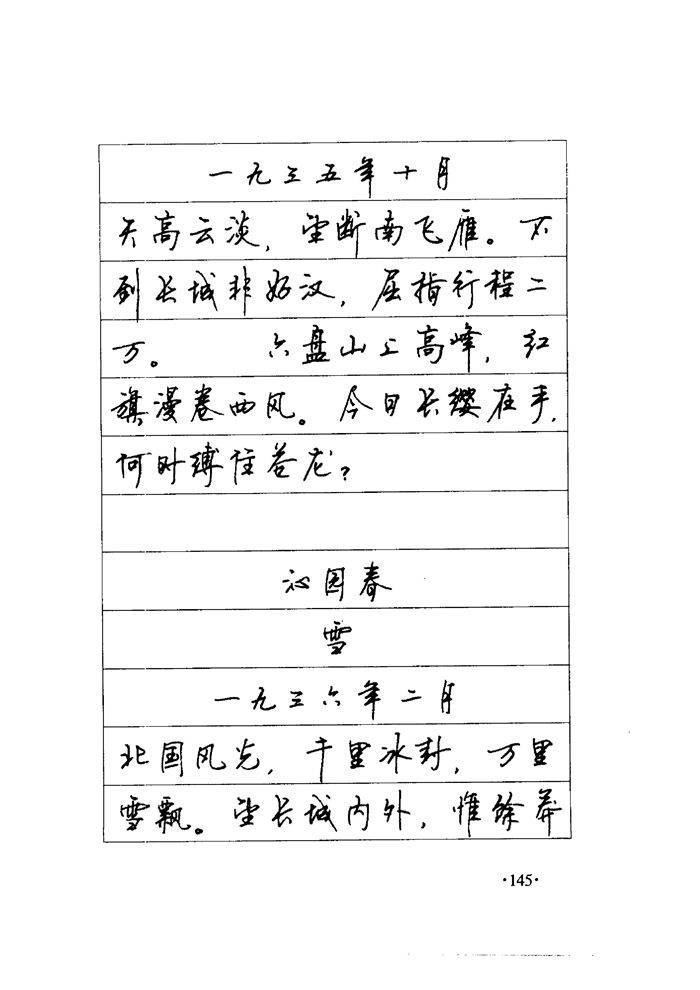 一九三五年十月
天高云淡，望断南飞雁。不
到长城非好汉，屈指行程二
万。 六盘山上高峰，红
旗漫卷西风。今日长缨在手，
何时缚住苍龙？
沁园春
雪
一九三六年二月
北国风光，千里冰封，万里
雪飘。望长城内外，惟馀莽
·145·